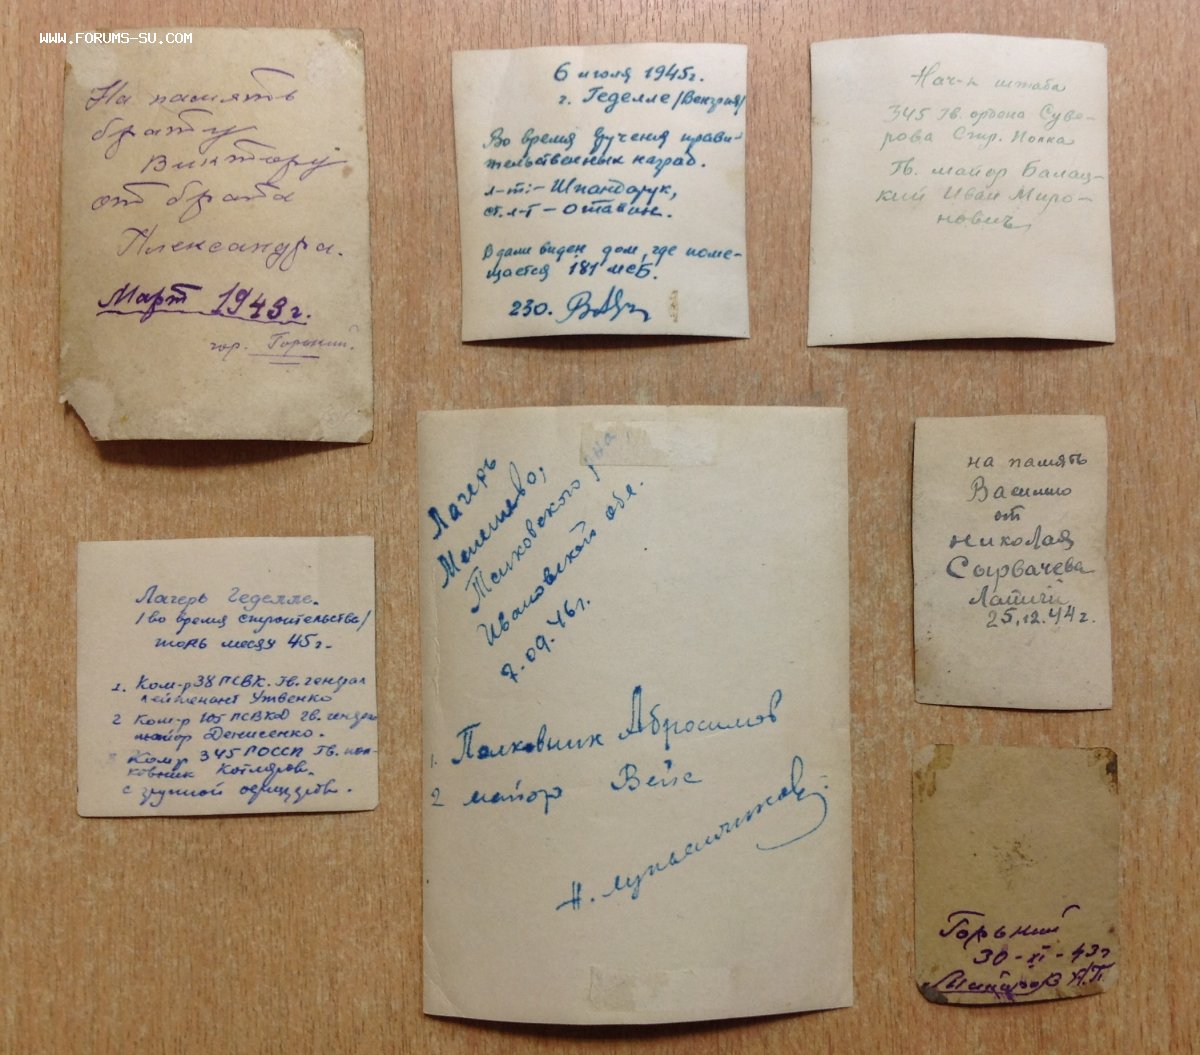 WWW.FORUMS-SU.COM
На память
брату
Виктору
от брата
Александра.
Март 1943г.
гор. Горький.
6 июля 1945г.
г. Геделле /Венгрия/
Во время вручения прави-
тельственных наград.
л-т:- Шпандарук,
ст.л-т - Оставин.
Вдали виден дом, где поме-
щается 181 МСБ.
230.
Нач-к штаба
345 Гв. ордена Суво-
рова Стр. Полка
Гв. майор Балац-
кий Иван Миро-
нович
Лагерь Геделле.
/во время строительства/
июль месяц 45г.
1. Ком-р 38 ГСВК. Гв. генерал
лейтенант Утвенко
2 Ком-р 105 ГСВКД Гв. генерал
майор Денисенко.
Ком-р 345 ГОССП Гв. пол-
ковник Котляров.
с группой офицеров.
Лагерь
Тейковского р-на
Ивановской обл.
7.09.46г.
1. Полковник Абросимов
2 майор Вейс
Н. Лукьянчиков
на память
Василию
от
Николая
Сырвачева
25.12.44г.
Горький
30-XI-43г
А.П.